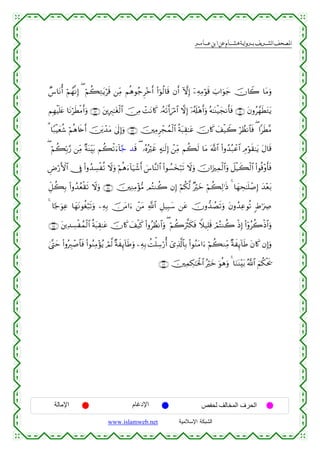 المصحف الشريف برواية هشام عن ابن عامر
وَمَا كَانَ جَوَابَ قَوْمِهِۦٓ إِلَّآ أَن قَالُوٓا۟ أَخْرِجُوهُم مِّن قَرْيَتِكُمْ ۖ إِنَّهُمْ أُنَاسٌ
يَتَطَهَّرُونَ فَأَنجَيْنَٰهُ وَأَهْلَهُۥٓ إِلَّا ٱمْرَأَتَهُۥ كَانَتْ مِنَ ٱلْغَٰبِرِينَ وَأَمْطَرْنَا عَلَيْهِم
مَّطَرًا ۖ فَٱنظُرْ كَيْفَ كَانَ عَٰقِبَةُ ٱلْمُجْرِمِينَ وَإِلَىٰ مَدْيَنَ أَخَاهُمْ شُعَيْبًا ۗ
قَالَ يَٰقَوْمِ ٱعْبُدُوا۟ ٱللَّهَ مَا لَكُم مِّنْ إِلَٰهٍ غَيْرُهُۥ ۖ قَدْ جَآءَتْكُم بَيِّنَةٌ مِّن رَّبِّكُمْ ۖ
فَأَوْفُوا۟ ٱلْكَيْلَ وَٱلْمِيزَانَ وَلَا تَبْخَسُوا۟ ٱلنَّاسَ أَشْيَآءَهُمْ وَلَا تُفْسِدُوا۟ فِى ٱلْأَرْضِ
بَعْدَ إِصْلَٰحِهَا ۚ ذَٰلِكُمْ خَيْرٌ لَّكُمْ إِن كُنتُم مُّؤْمِنِينَ وَلَا تَقْعُدُوا۟ بِكُلِّ
صِرَٰطٍ تُوعِدُونَ وَتَصُدُّونَ عَن سَبِيلِ ٱللَّهِ مَنْ ءَامَنَ بِهِۦ وَتَبْغُونَهَا عِوَجًا ۚ
وَٱذْكُرُوٓا۟ إِذْ كُنتُمْ قَلِيلًا فَكَثَّرَكُمْ ۖ وَٱنظُرُوا۟ كَيْفَ كَانَ عَٰقِبَةُ ٱلْمُفْسِدِينَ
وَإِن كَانَ طَآئِفَةٌ مِّنكُمْ ءَامَنُوا۟ بِٱلَّذِىٓ أُرْسِلْتُ بِهِۦ وَطَآئِفَةٌ لَّمْ يُؤْمِنُوا۟ فَٱصْبِرُوا۟ حَتَّىٰ
يَحْكُمَ ٱللَّهُ بَيْنَنَا ۚ وَهُوَ خَيْرُ ٱلْحَٰكِمِينَ
الحرف المخالف لحفص الإدغام الإمالة
الشبكة الإسلامية www.islamweb.net